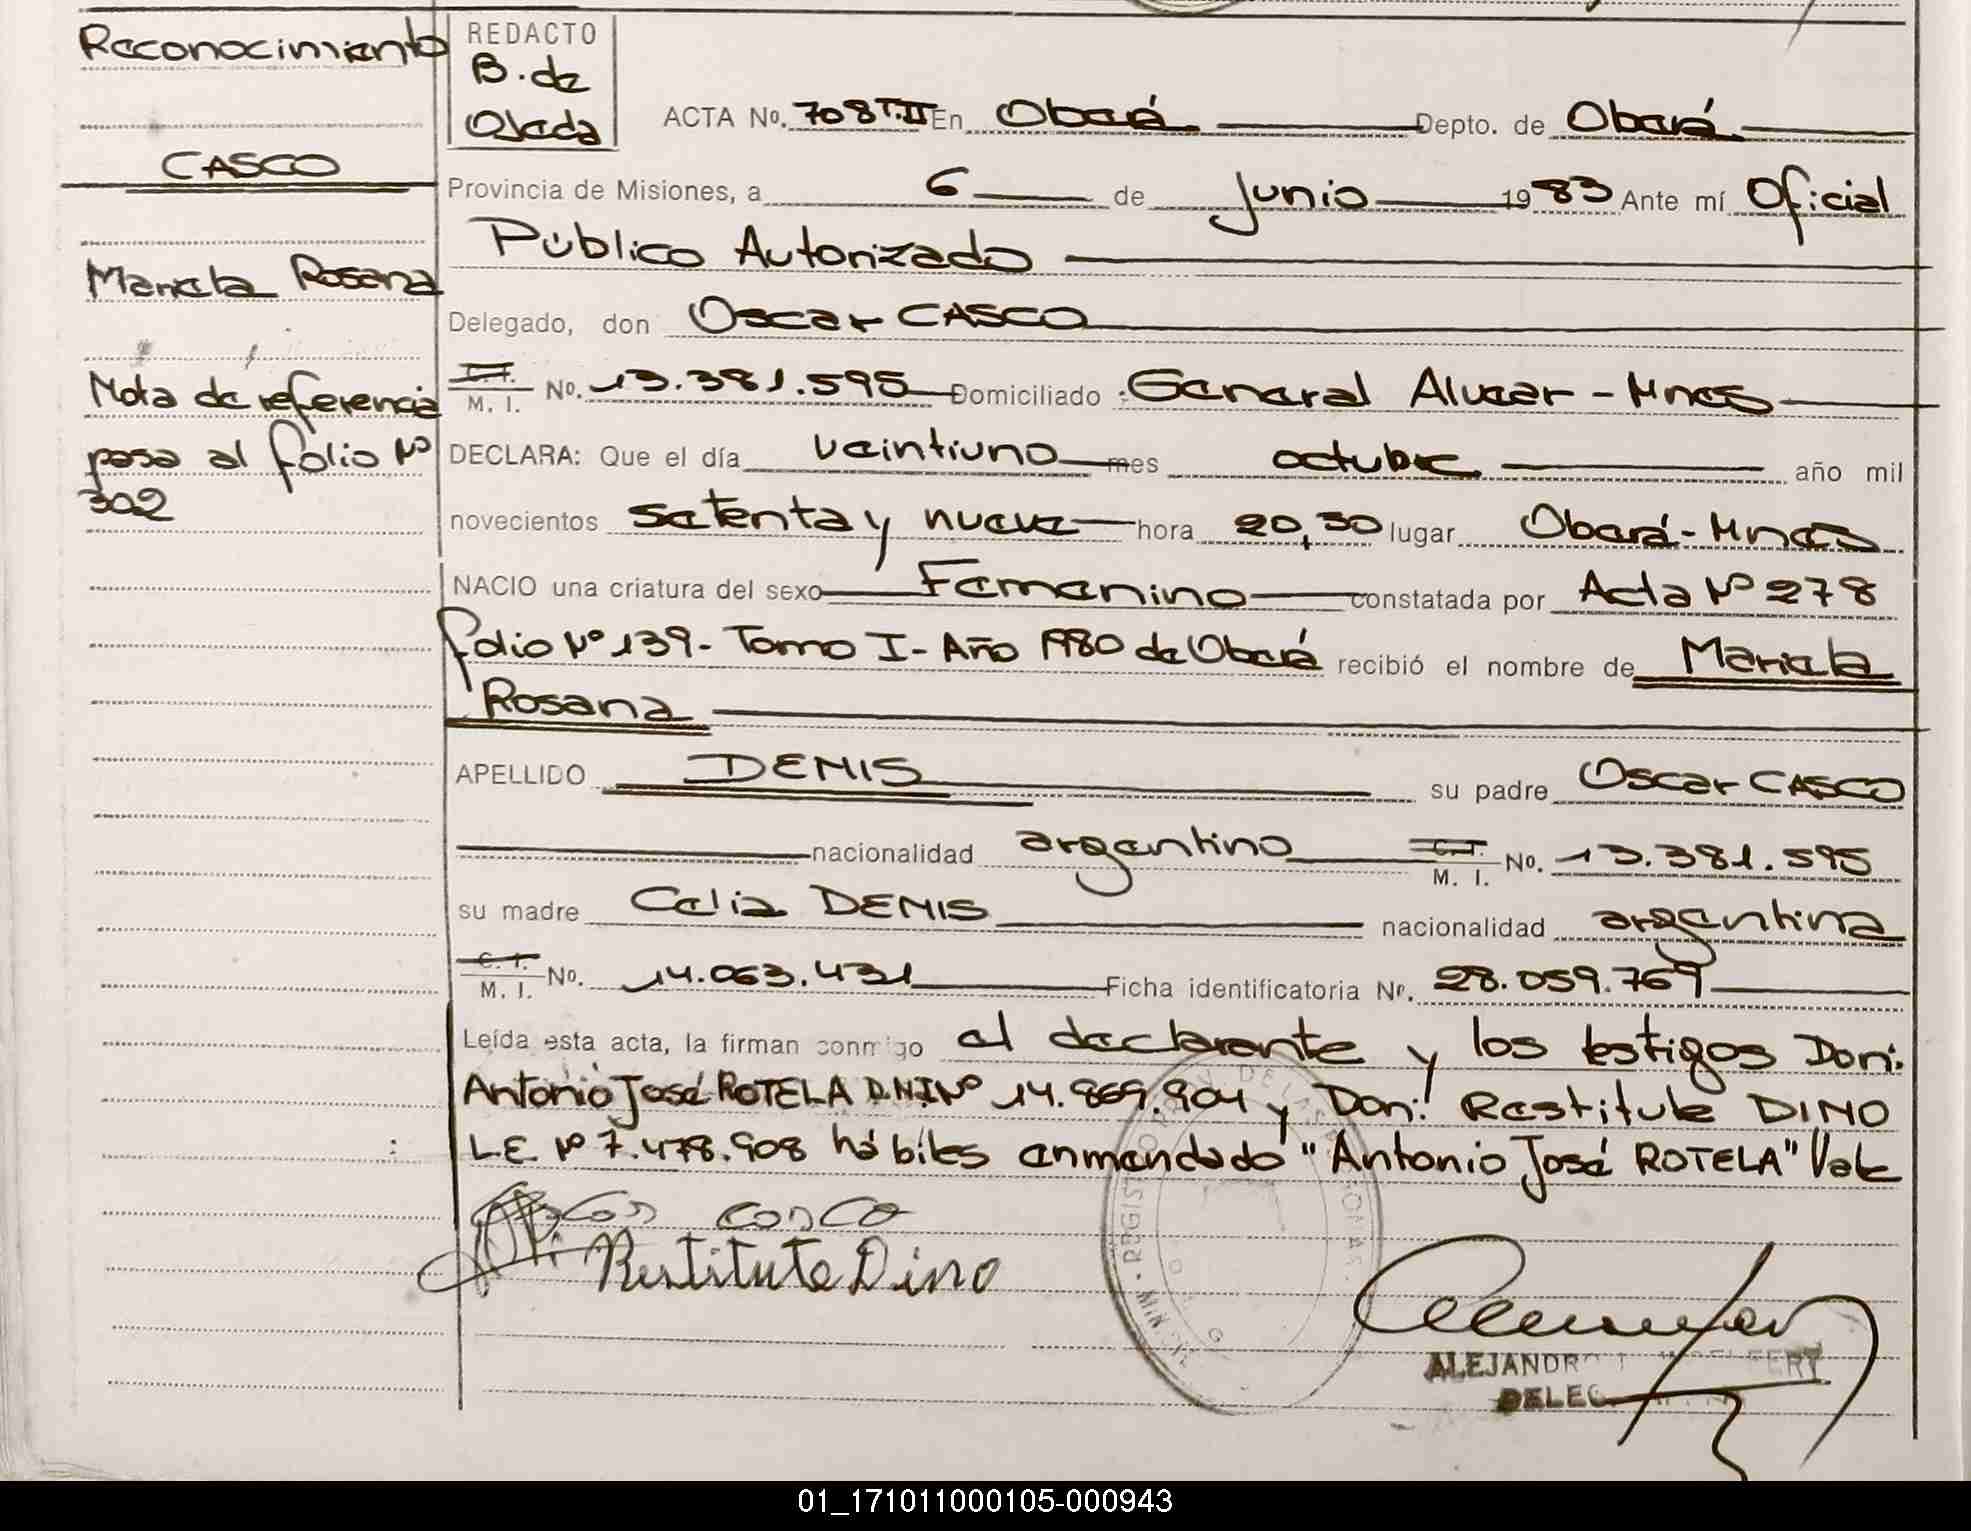 Reconocimiento
CASCO
Mariela Rosana
Nota de referencia
pasa al folio Nº
302
REDACTO
B. de
Ojeda
ACTA No. 708 T.II En Oberá Depto. de Oberá
Provincia de Misiones, a 6 de junio 1983 Ante mí Oficial
Público Autorizado
Delegado, don Oscar CASCO
C. I. M. I. No. 13.381.595 Domiciliado General Alvear - Mnes
DECLARA: Que el día veintiuno mes octubre año mil
novecientos setenta y nueve hora 20,30 lugar Oberá - Mnes
NACIO una criatura del sexo Femenino constatada por Acta Nº 278
folio Nº 139 - Tomo I - Año 1980 de Oberá recibió el nombre de Mariela
Rosana
APELLIDO DENIS su padre Oscar CASCO
nacionalidad argentino C. I. M. I. No. 13.381.595
su madre Celia DENIS nacionalidad argentina
C. I. M. I. No. 14.063.431 Ficha identificatoria Nº. 28.059.769
Leída esta acta, la firman conmigo el declarante y los testigos Don:
Antonio José ROTELA D.N.I Nº 14.869.904 y Don: Restitute DINO
L.E Nº 7.478.908 hábiles enmendado "Antonio José ROTELA" Vale
Oscar Casco
Restituto Dino
ALEJANDRO
01_171011000105-000943